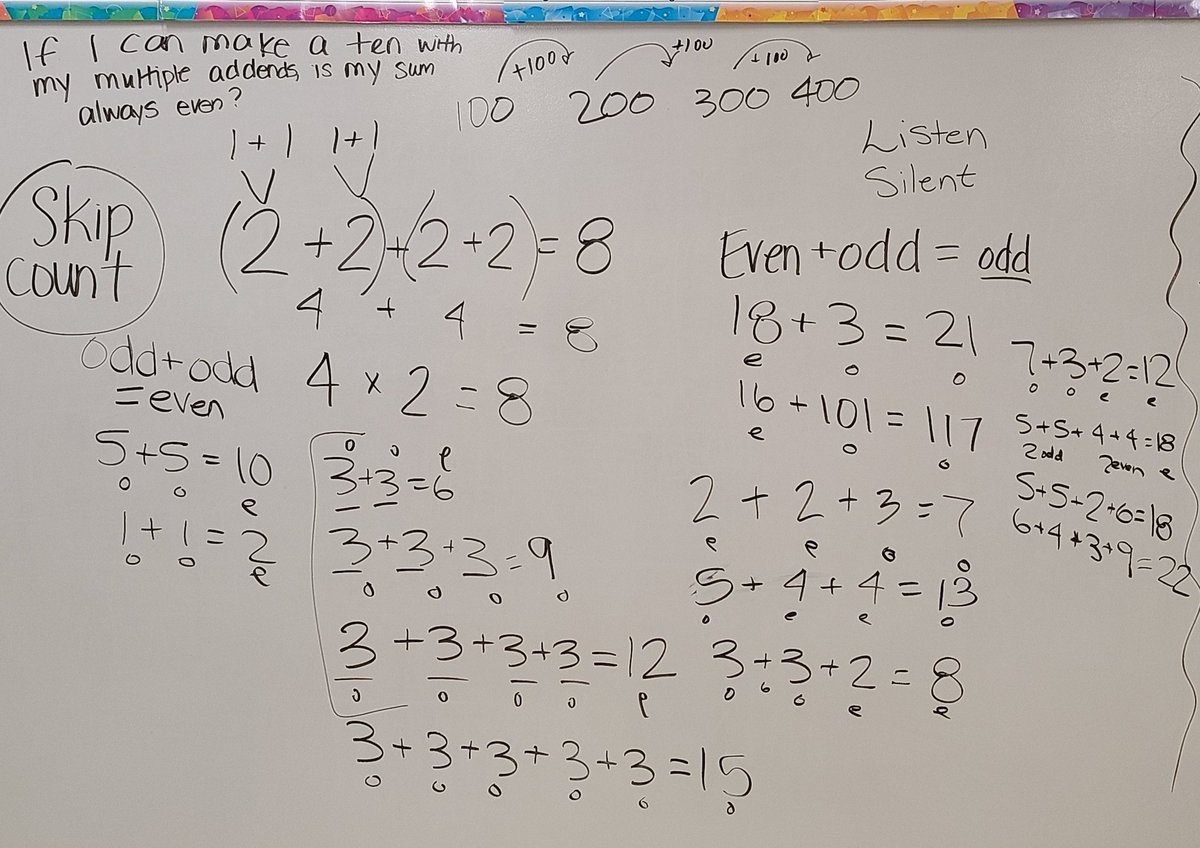 If I can make a ten with
my multiple addends, is my sum
always even?
+100 +100 +100
100 200 300 400
Listen
Silent
Skip
count
1+1 1+1
(2+2)+(2+2)=8
4 + 4 = 8
4 × 2 = 8
odd+odd
=even
5+5=10
o o e
1+1=2
o o e
o o e
3+3=6
3+3+3=9
o o o o
3+3+3+3=12
o o o o e
3+3+3+3+3=15
o o o o o o
Even+odd=odd
18+3=21
e o o
16+101=117
e o o
2+2+3=7
e e o o
5+4+4=13
o e e o
3+3+2=8
o o o e e
7+3+2=12
o o e e
5+5+4+4=18
2 odd 2even e
5+5+2+6=18
6+4+3+9=22